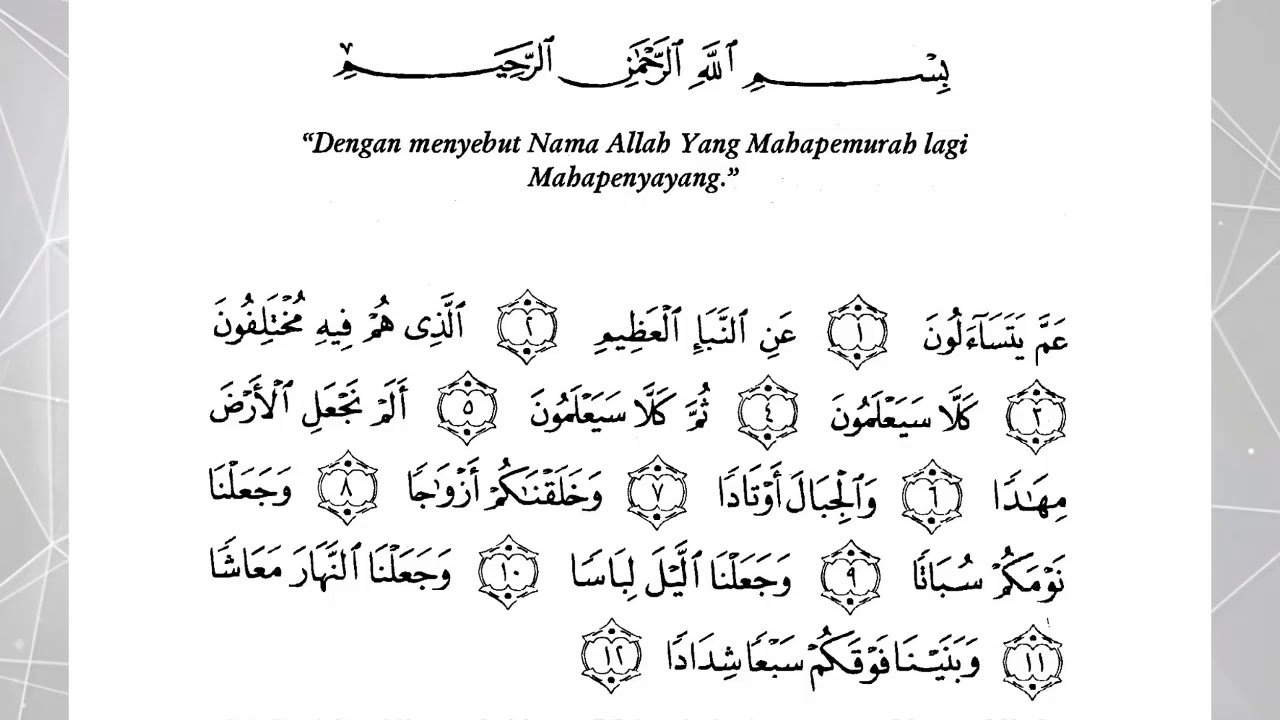 بِسْمِ ٱللَّهِ ٱلرَّحْمَٰنِ ٱلرَّحِيمِ
“Dengan menyebut Nama Allah Yang Mahapemurah lagi
Mahapenyayang.”
عَمَّ يَتَسَآءَلُونَ ١ عَنِ ٱلنَّبَإِ ٱلْعَظِيمِ ٢ ٱلَّذِى هُمْ فِيهِ مُخْتَلِفُونَ
٣ كَلَّا سَيَعْلَمُونَ ٤ ثُمَّ كَلَّا سَيَعْلَمُونَ ٥ أَلَمْ نَجْعَلِ ٱلْأَرْضَ
مِهَٰدًا ٦ وَٱلْجِبَالَ أَوْتَادًا ٧ وَخَلَقْنَٰكُمْ أَزْوَٰجًا ٨ وَجَعَلْنَا
نَوْمَكُمْ سُبَاتًا ٩ وَجَعَلْنَا ٱلَّيْلَ لِبَاسًا ١٠ وَجَعَلْنَا ٱلنَّهَارَ مَعَاشًا
١١ وَبَنَيْنَا فَوْقَكُمْ سَبْعًا شِدَادًا ١٢